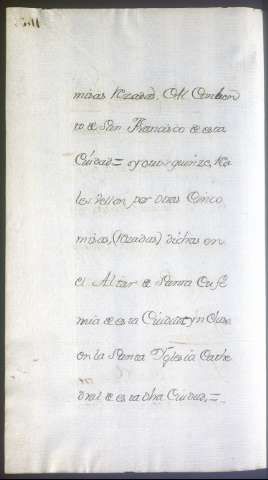 misas rezadas, Al Conben
to de San Francisco de esta
Ciudad = y otros quinze Rs
les vellon, por otras Cinco
misas, (rezadas) dichas en
el Altar de Santa Eufe
mia de esta Ciudad, yn Clusa
en la Santa Yglesia Cathe
dral de esta dha Ciudad, =